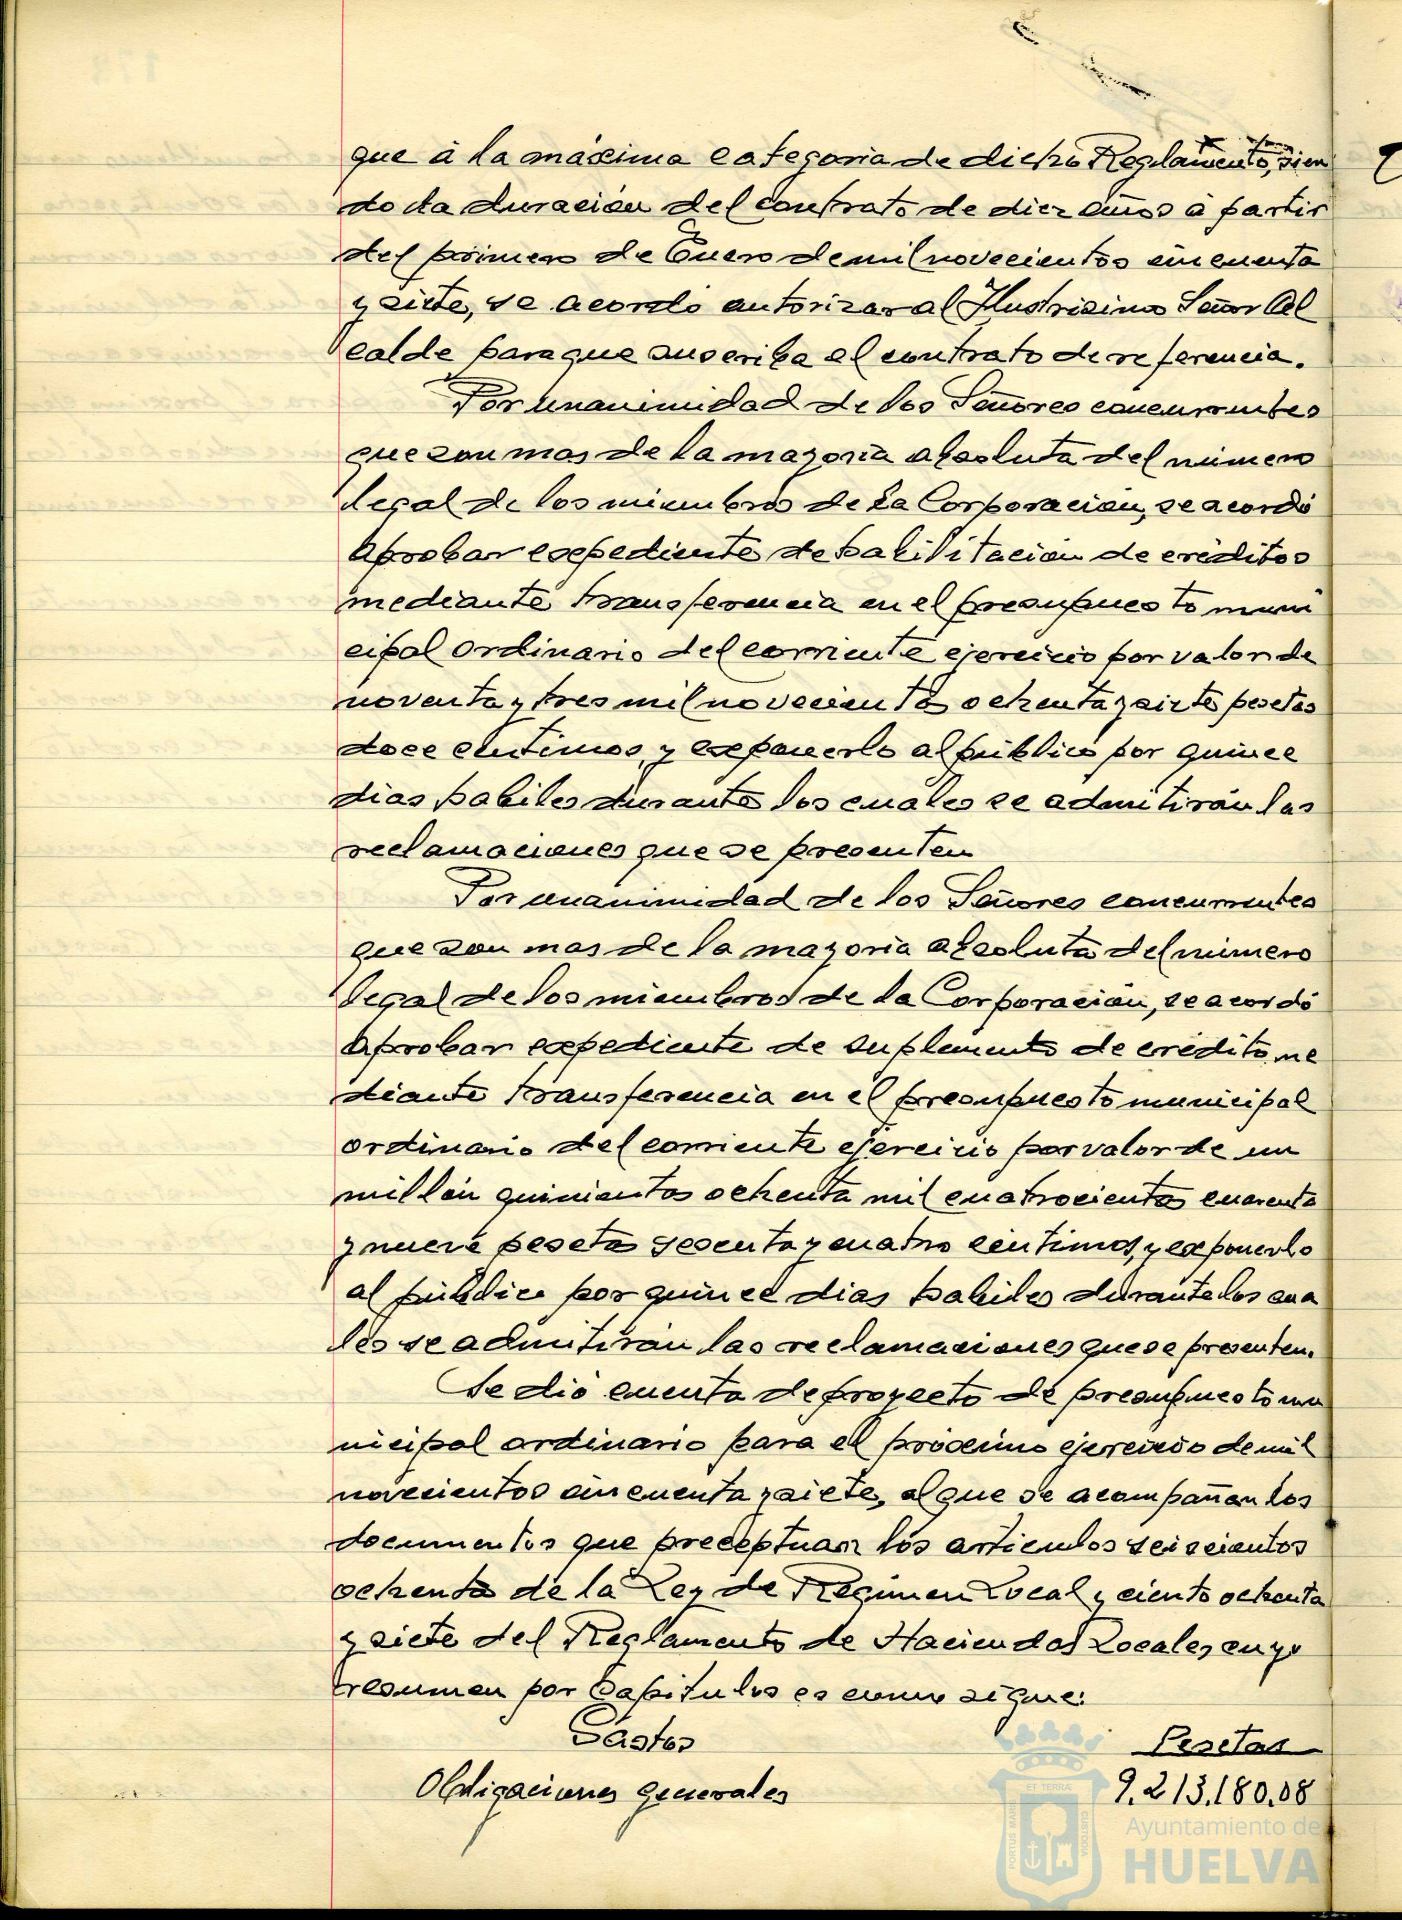 que á la máxima categoria de dicho Reglamento, sien
do la duración del contrato de diez años á partir
del primero de Enero de mil novecientos cincuenta
y siete, se acordó autorizar al Ilustrisimo Señor Al
calde para que suscriba el contrato de referencia.
Por unanimidad de los Señores concurrentes
que son mas de la mayoria absoluta del número
legal de los miembros de la Corporación, se acordó
aprobar expediente de habilitación de créditos
mediante transferencia en el presupuesto muni
cipal ordinario del corriente ejercicio por valor de
noventa y tres mil novecientas ochenta y siete pesetas
doce centimos, y exponerlo al público por quince
dias habiles durante los cuales se admitirán las
reclamaciones que se presenten
Por unanimidad de los Señores concurrentes
que son mas de la mayoria absoluta del número
legal de los miembros de la Corporación, se acordó
aprobar expediente de suplemento de crédito me
diante transferencia en el presupuesto municipal
ordinario del corriente ejercicio por valor de un
millón quinientas ochenta mil cuatrocientas cuarenta
y nueve pesetas sesenta y cuatro céntimos, y exponerlo
al público por quince dias habiles durante los cua
les se admitirán las reclamaciones que se presenten.
Se dió cuenta de proyecto de presupuesto mu
nicipal ordinario para el próximo ejercicio de mil
novecientos cincuenta y siete, al que se acompañan los
documentos que preceptuan los articulos seiscientos
ochenta de la Ley de Régimen Local y ciento ochenta
y siete del Reglamento de Haciendas Locales cuyo
resumen por Capitulos es como sigue:
Gastos Pesetas
Obligaciones generales 9.213.180.08
ET TERRÆ
PORTUS MARIS
CUSTODIA
Ayuntamiento de
HUELVA